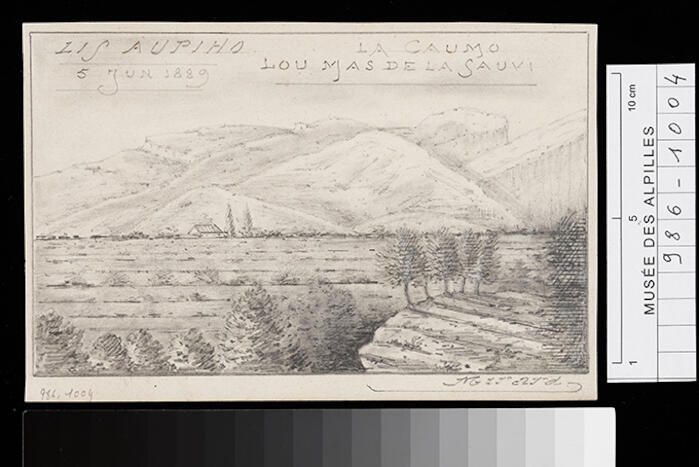 LIS AUPIHO
5 JUN 1889
LA CAUMO
LOU MAS DE LA SAUVI
986.1004
10 cm
5
1
MUSÉE DES ALPILLES
986-1004